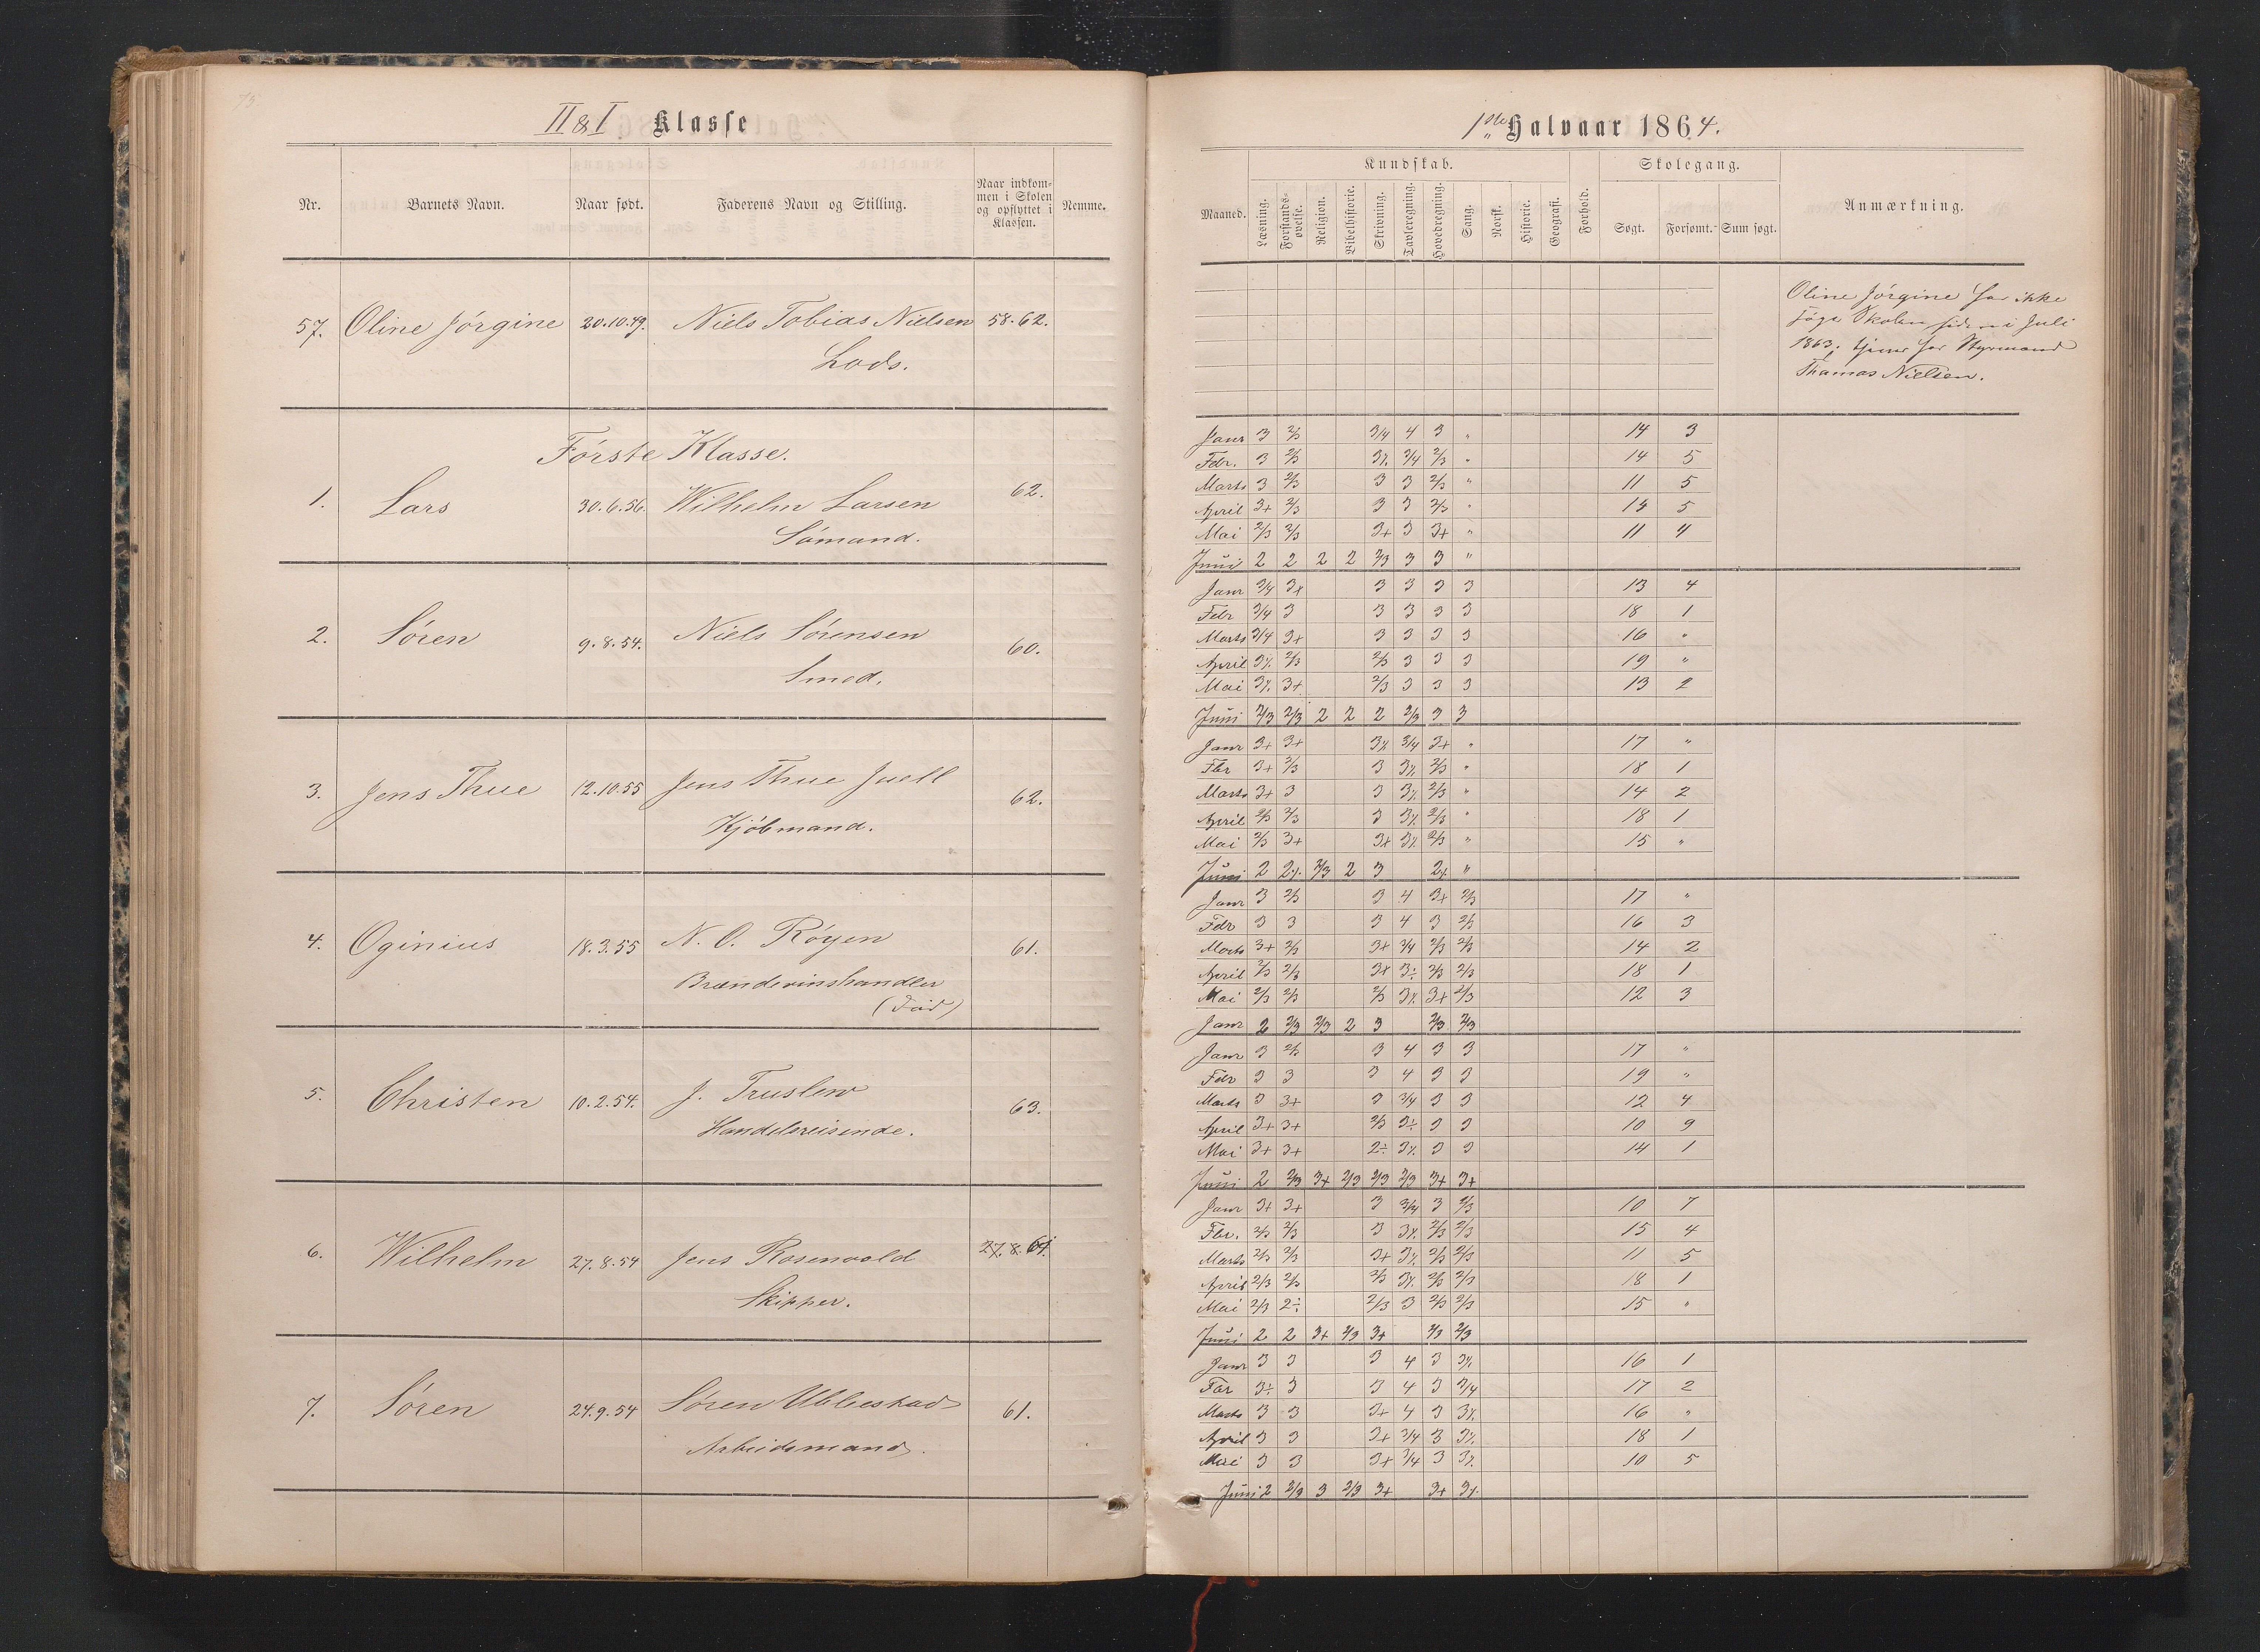 73.
II & I Klasse
Nr. Barnets Navn. Naar født. Faderens Navn og Stilling. Naar indkommen i Skolen og opflyttet i Klassen. Nemme.
57. Oline Jörgine 20.10.49. Niels Tobias Nielsen 58. 62.
Lods.
Förste Klasse.
1. Lars 30.6.56. Wilhelm Larsen 62.
Sömand.
2. Sören 9.8.54. Niels Sörensen 60.
Smed.
3. Jens Thue 12.10.55 Jens Thue Juell 62.
Kjöbmand.
4. Oginius 18.3.55 N. O. Röyen 61.
Brændevinshandler
(Död)
5. Christen 10.2.54. J. Truslew 63.
Handelsreisende.
6. Wilhelm 27.8.54 Jens Rosenvold 27.8.61.
Skipper.
7. Sören 24.9.54 Sören Ubbestad 61.
Arbeidsmand.
1ste Halvaar 1864.
Kundskab. Skolegang.
Maaned. Læsning. Forstandsøvelse. Religion. Bibelhistorie. Skrivning. Tavleregning. Hovedregning. Sang. Norsk. Historie. Geografi. Forhold. Søgt. Forsømt. Sum søgt. Anmærkning.
Oline Jörgine har ikke
sögt Skolen siden i Juli
1863; tjener hos Styrmand
Thomas Nielsen.
Janr 3 2/3 3/4 4 3 " 14 3
Febr. 3 2/3 3% 3/4 2/3 " 14 5
Marts 3 2/3 3 3 2/3 " 11 5
April 3+ 2/3 3 3 2/3 " 13 5
Mai 2/3 2/3 3+ 3 3+ " 11 4
Juni 2 2 2 2 2/3 3 3 "
Janr 3/4 3+ 3 3 3 3 13 4
Febr 3/4 3 3 3 3 3 18 1
Marts 3/4 3+ 3 3 3 3 16 "
April 3% 2/3 2/3 3 3 3 19 "
Mai 3% 3+ 2/3 3 3 3 13 2
Juni 2/3 2/3 2 2 2 2/3 3 3
Janr 3+ 3+ 3% 3/4 3+ " 17 "
Fbr 3+ 2/3 3 3% 2/3 " 18 1
Marts 3+ 3 3 3% 2/3 " 14 2
April 2/3 2/3 3 3% 2/3 " 18 1
Mai 2/3 3+ 3+ 3% 2/3 " 15 "
Juni 2 2% 2/3 2 3 2% "
Janr 3 2/3 3 4 3+ 2/3 17 "
Febr 3 3 3 4 3 2/3 16 3
Marts 3+ 2/3 3+ 3/4 2/3 2/3 14 2
April 2/3 2/3 3+ 3÷ 2/3 2/3 18 1
Mai 2/3 2/3 2/3 3% 3+ 2/3 12 3
Janr 2 2/3 2/3 2 3 2/3 2/3
Janr 3 2/3 3 4 3 3 17 "
Febr 3 3 3 4 3 3 19 "
Marts 3 3+ 3 3/4 3 3 12 4
April 3+ 3+ 2/3 3÷ 3 3 10 9
Mai 3+ 3+ 2÷ 3% 3 3 14 1
Juni 2 2/3 3+ 2/3 2/3 2/3 3+ 3+
Janr 3+ 3+ 3 3/4 3 2/3 10 7
Fbr. 2/3 2/3 3 3% 2/3 2/3 15 4
Marts 2/3 2/3 3+ 3% 2/3 2/3 11 5
April 2/3 2/3 2/3 3% 2/3 2/3 18 1
Mai 2/3 2÷ 2/3 3 2/3 2/3 15 "
Juni 2 2 3+ 2/3 3+ 2/3 2/3
Janr 3 3 3 4 3 3% 16 1
Fbr 3÷ 3 3 4 3 3/4 17 2
Marts 3 3 3+ 4 3 3% 16 "
April 3 3 3+ 3/4 3 3% 18 1
Mai 3 3 3+ 3/4 3 3% 10 5
Juni 2 2/3 3 2/3 3+ 3+ 3%